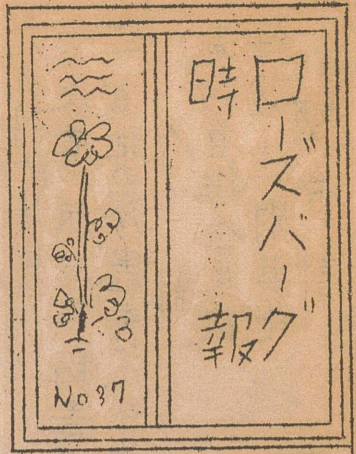 ローズバーグ
時報
No 37